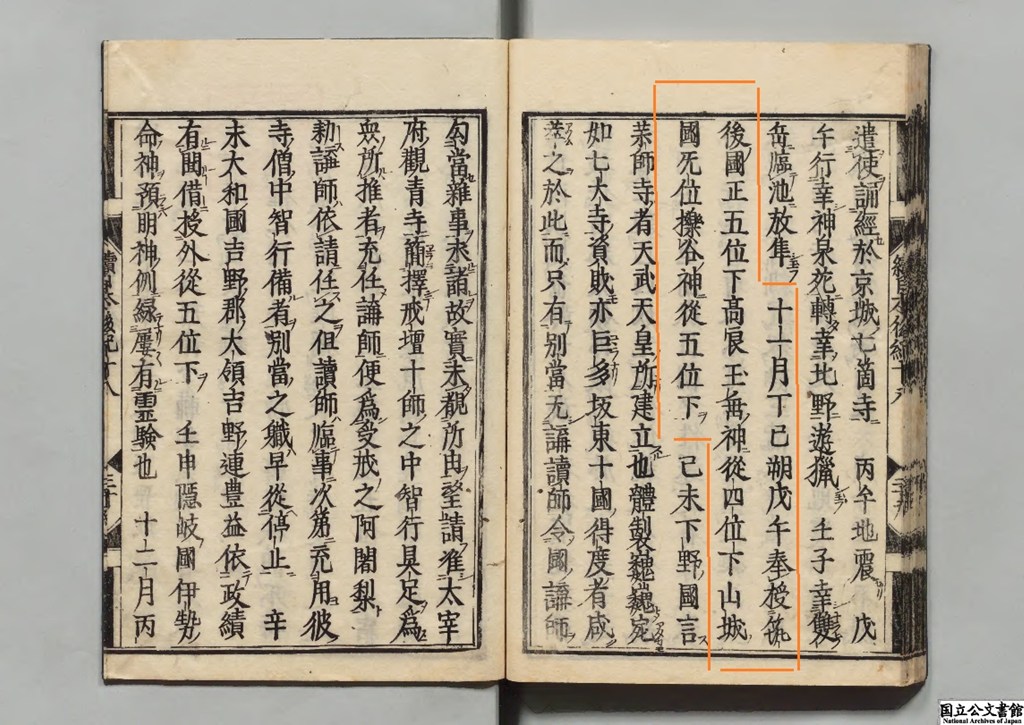 遣使誦經於京城七箇寺　丙午地震　戊
午行幸神泉苑轉幸北野遊獵　壬子幸雙
岳臨池放隼　十一月丁巳朔戊午奉授筑
後國正五位下高良玉垂神從四位下山城
國无位櫟谷神從五位下　己未下野國言
藥師寺者天武天皇所建立也體製巍巍宛
如七大寺資財亦巨多坂東十國得度者咸
萃之於此而只有別當无講讀師令國講師
勾當雜事求諸故實未覩所由望請准太宰
府觀音寺簡擇戒壇十師之中智行具足爲
衆所推者充任講師便爲受戒之阿闍梨
勅講師依請任之但讀師臨事次第充用彼
寺僧中智行備者別當之職早從停止　辛
未大和國吉野郡大領吉野連豊益依政績
有聞借授外從五位下　壬申隱岐國伊勢
命神預明神例緣屢有靈驗也　十二月丙
國立公文書館
National Archives of Japan